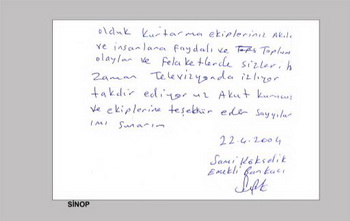 olduk kurtarma ekipleriniz Akıllı
ve insanlara faydalı ve Toplum
olaylar ve felaketlerde sizleri h
Zaman Televizyonda izliyor
takdir ediyoruz Akut kurucu
ve ekiplerine teşekkür eder saygılar
ımı sunarım
22.4.2004
Sami
Emekli Bankacı
SİNOP